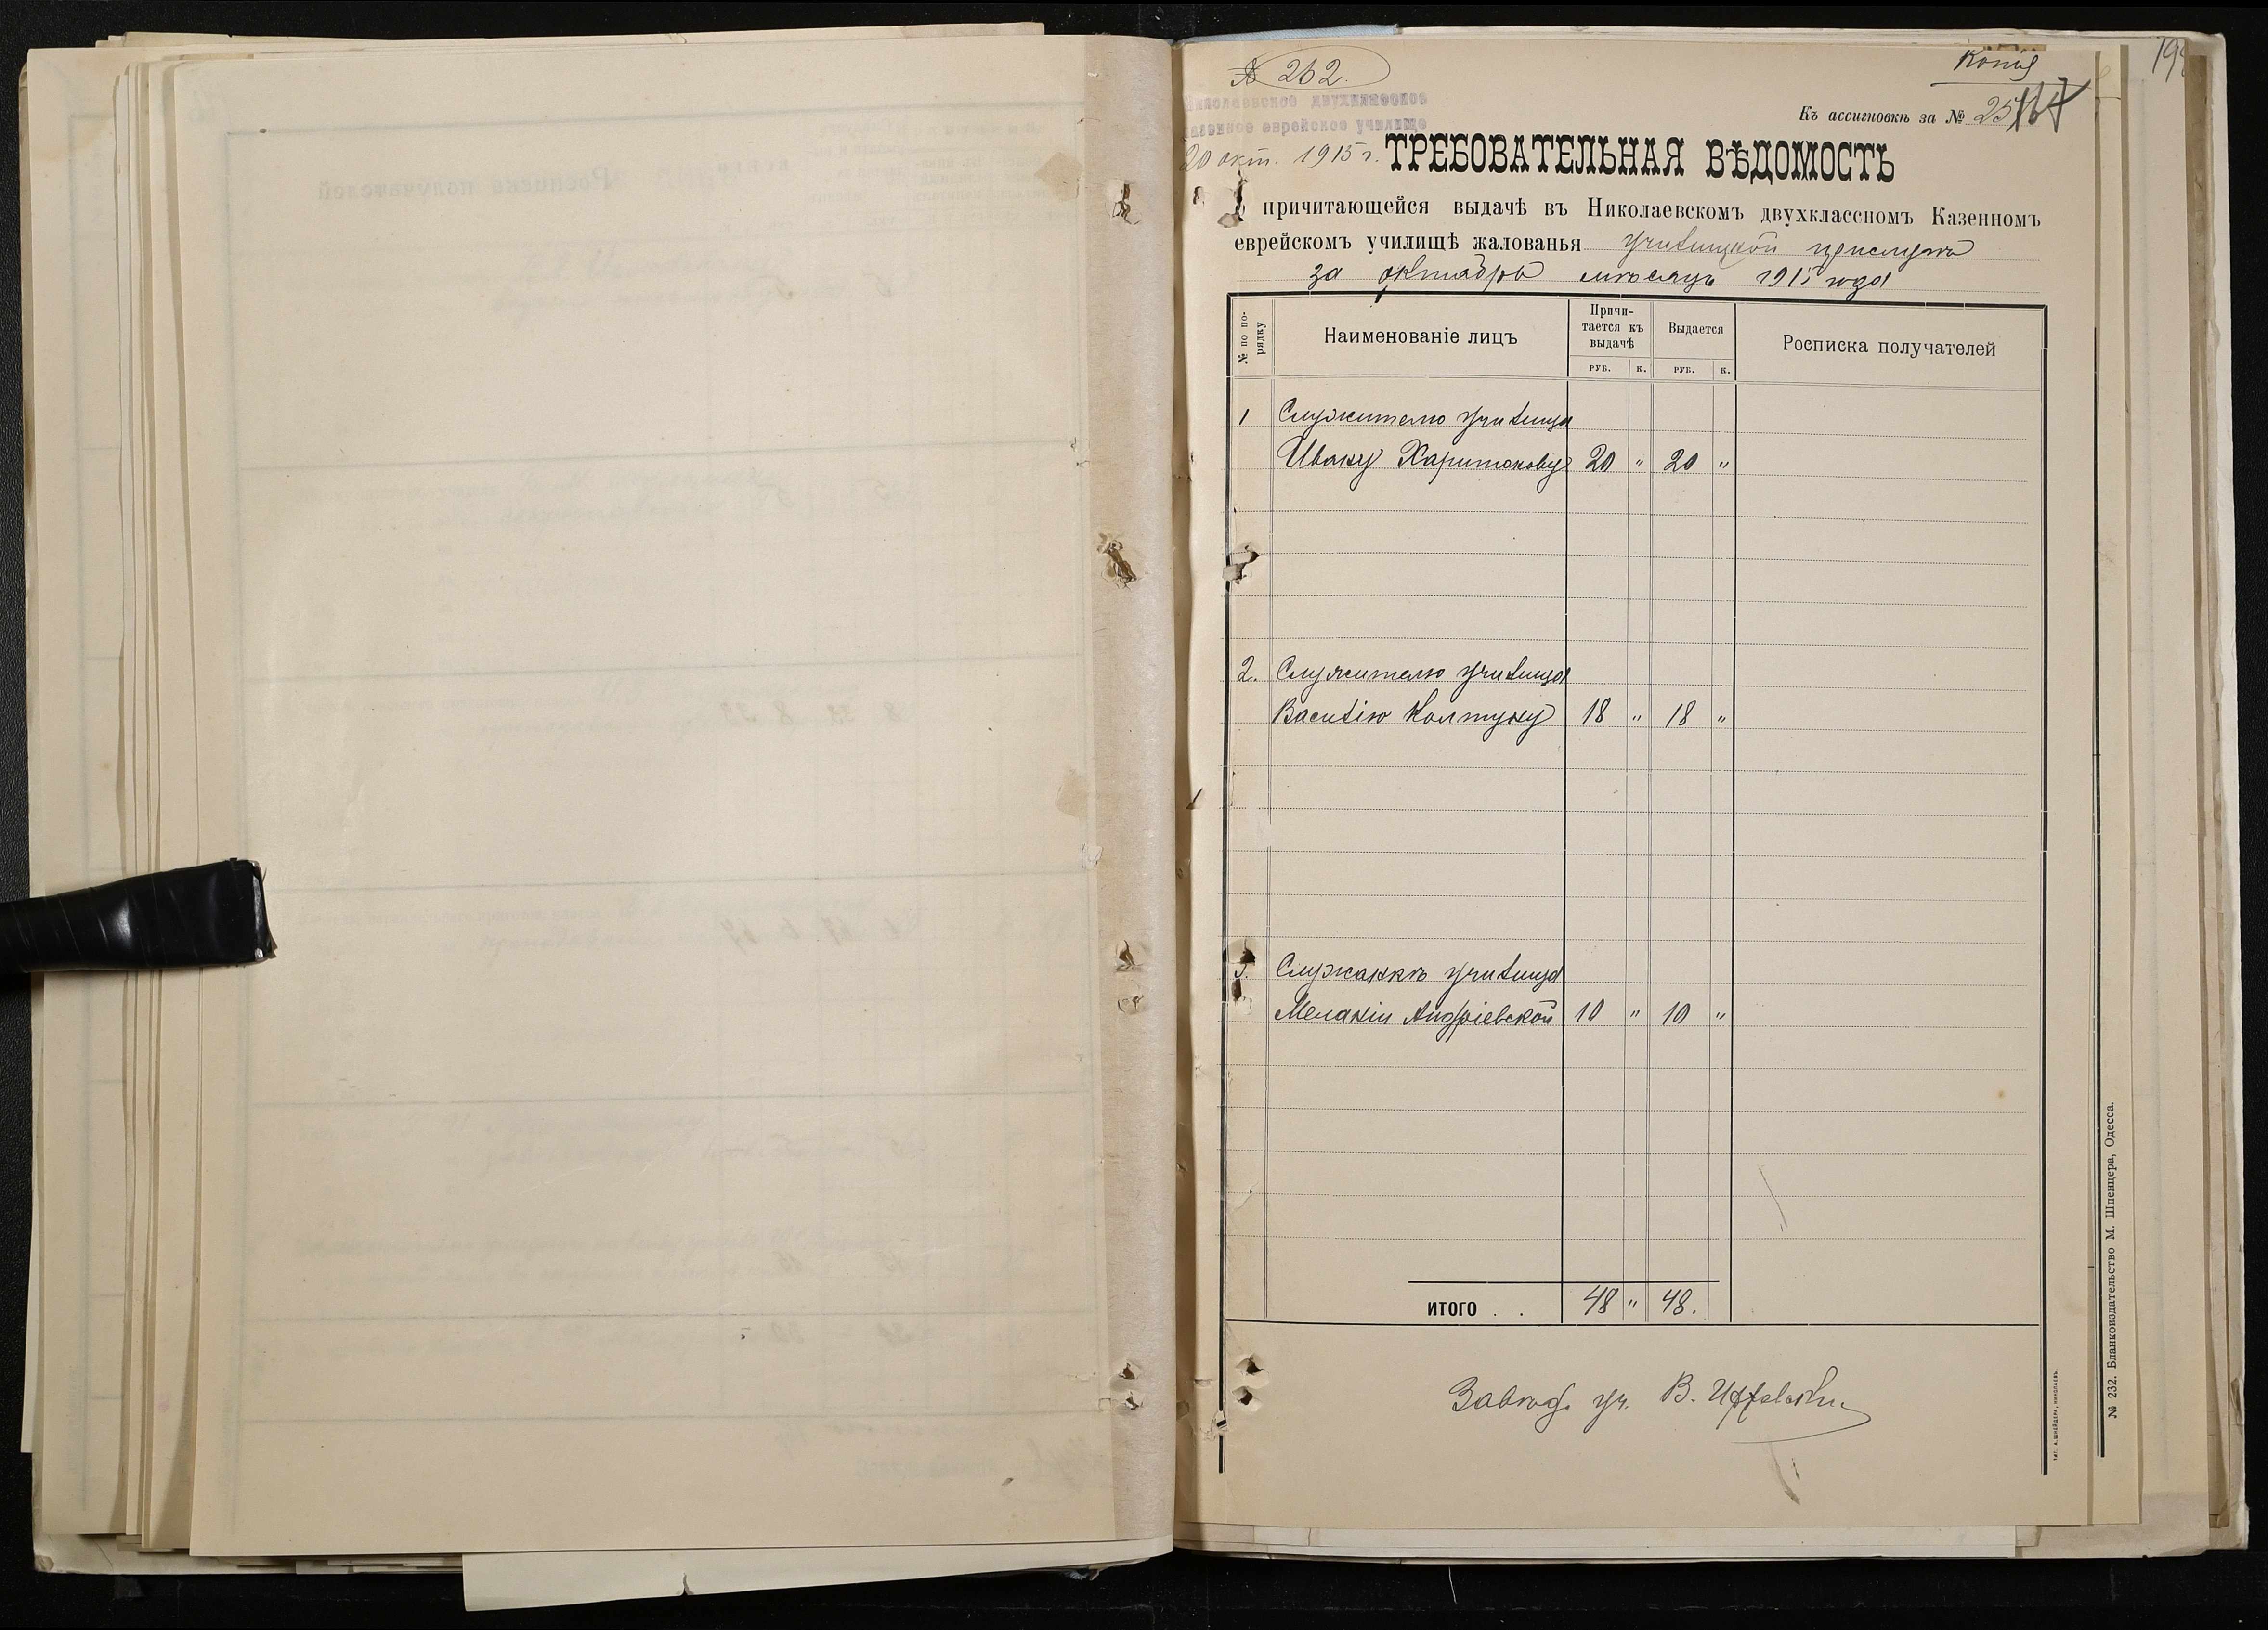 Копія
№ 262.
Николаевское двухклассное
казенное еврейское училище
20 окт. 1915 г.
Къ ассигновкѣ за № 25
ТРЕБОВАТЕЛЬНАЯ ВѢДОМОСТЬ
причитающейся выдачѣ въ Николаевскомъ двухклассномъ Казенномъ
еврейскомъ училищѣ жалованья училищной прислугѣ
за октябрь мѣсяцъ 1915 года
№ по порядку
Наименованіе лицъ
Причитается къ выдачѣ
Выдается
Росписка получателей
РУБ. К. РУБ. К.
1 Служителю училища
Ивану Харитонову 20 " 20 "
2. Служителю училища
Василію Колтуну 18 " 18 "
3. Служанкѣ училища
Меланіи Андріевской 10 " 10 "
ИТОГО . . 48 " 48.
Завѣд. уч. В.
ТИП. А. ШНЕЙДЕРА, НИКОЛАЕВЪ
№ 232. Бланкоиздательство М. Шпенцера, Одесса.